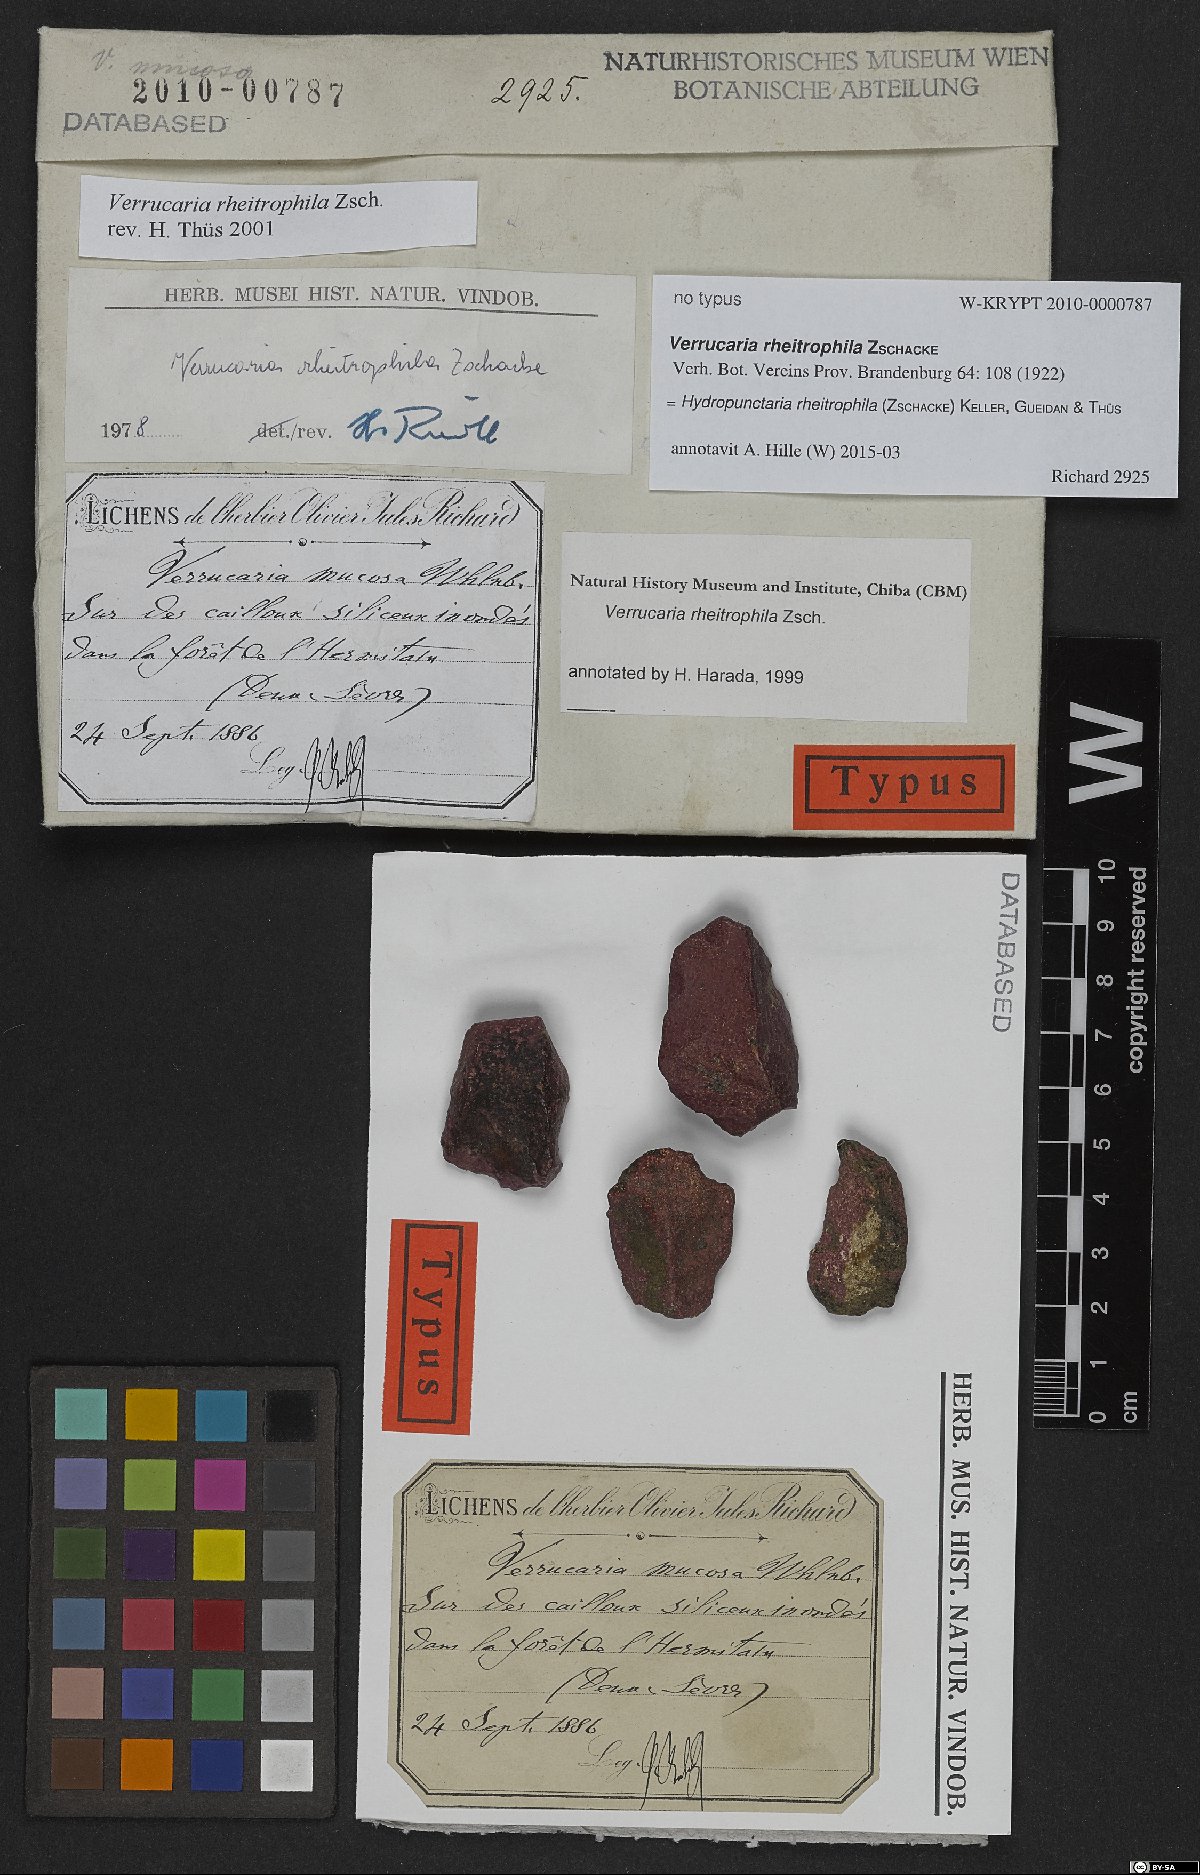 V. mucosa
2010-00787
2925.
NATURHISTORISCHES MUSEUM WIEN
BOTANISCHE ABTEILUNG
DATABASED
Verrucaria rheitrophila Zsch.
rev. H. Thüs 2001
HERB. MUSEI HIST. NATUR. VINDOB.
Verrucaria rheitrophila Zschacke
1978 det./rev.
no typus
W-KRYPT 2010-0000787
Verrucaria rheitrophila ZSCHACKE
Verh. Bot. Vereins Prov. Brandenburg 64: 108 (1922)
= Hydropunctaria rheitrophila (ZSCHACKE) KELLER, GUEIDAN & THÜS
annotavit A. Hille (W) 2015-03
Richard 2925
LICHENS de l'herbier Olivier Jules Richard
Verrucaria mucosa Whlnb.
Sur des cailloux siliceux inondés
dans la forêt de l'Hermitain
(Deux Sèvres)
24 Sept. 1886
Leg.
Natural History Museum and Institute, Chiba (CBM)
Verrucaria rheitrophila Zsch.
annotated by H. Harada, 1999
Typus
W
copyright reserved
10
9
8
7
6
5
4
3
2
1
0
cm
DATABASED
Typus
HERB. MUS. HIST. NATUR. VINDOB.
LICHENS de l'herbier Olivier Jules Richard
Verrucaria mucosa Whlnb.
Sur des cailloux siliceux inondés
dans la forêt de l'Hermitain
(Deux Sèvres)
24 Sept. 1886
Leg.
CC BY-SA